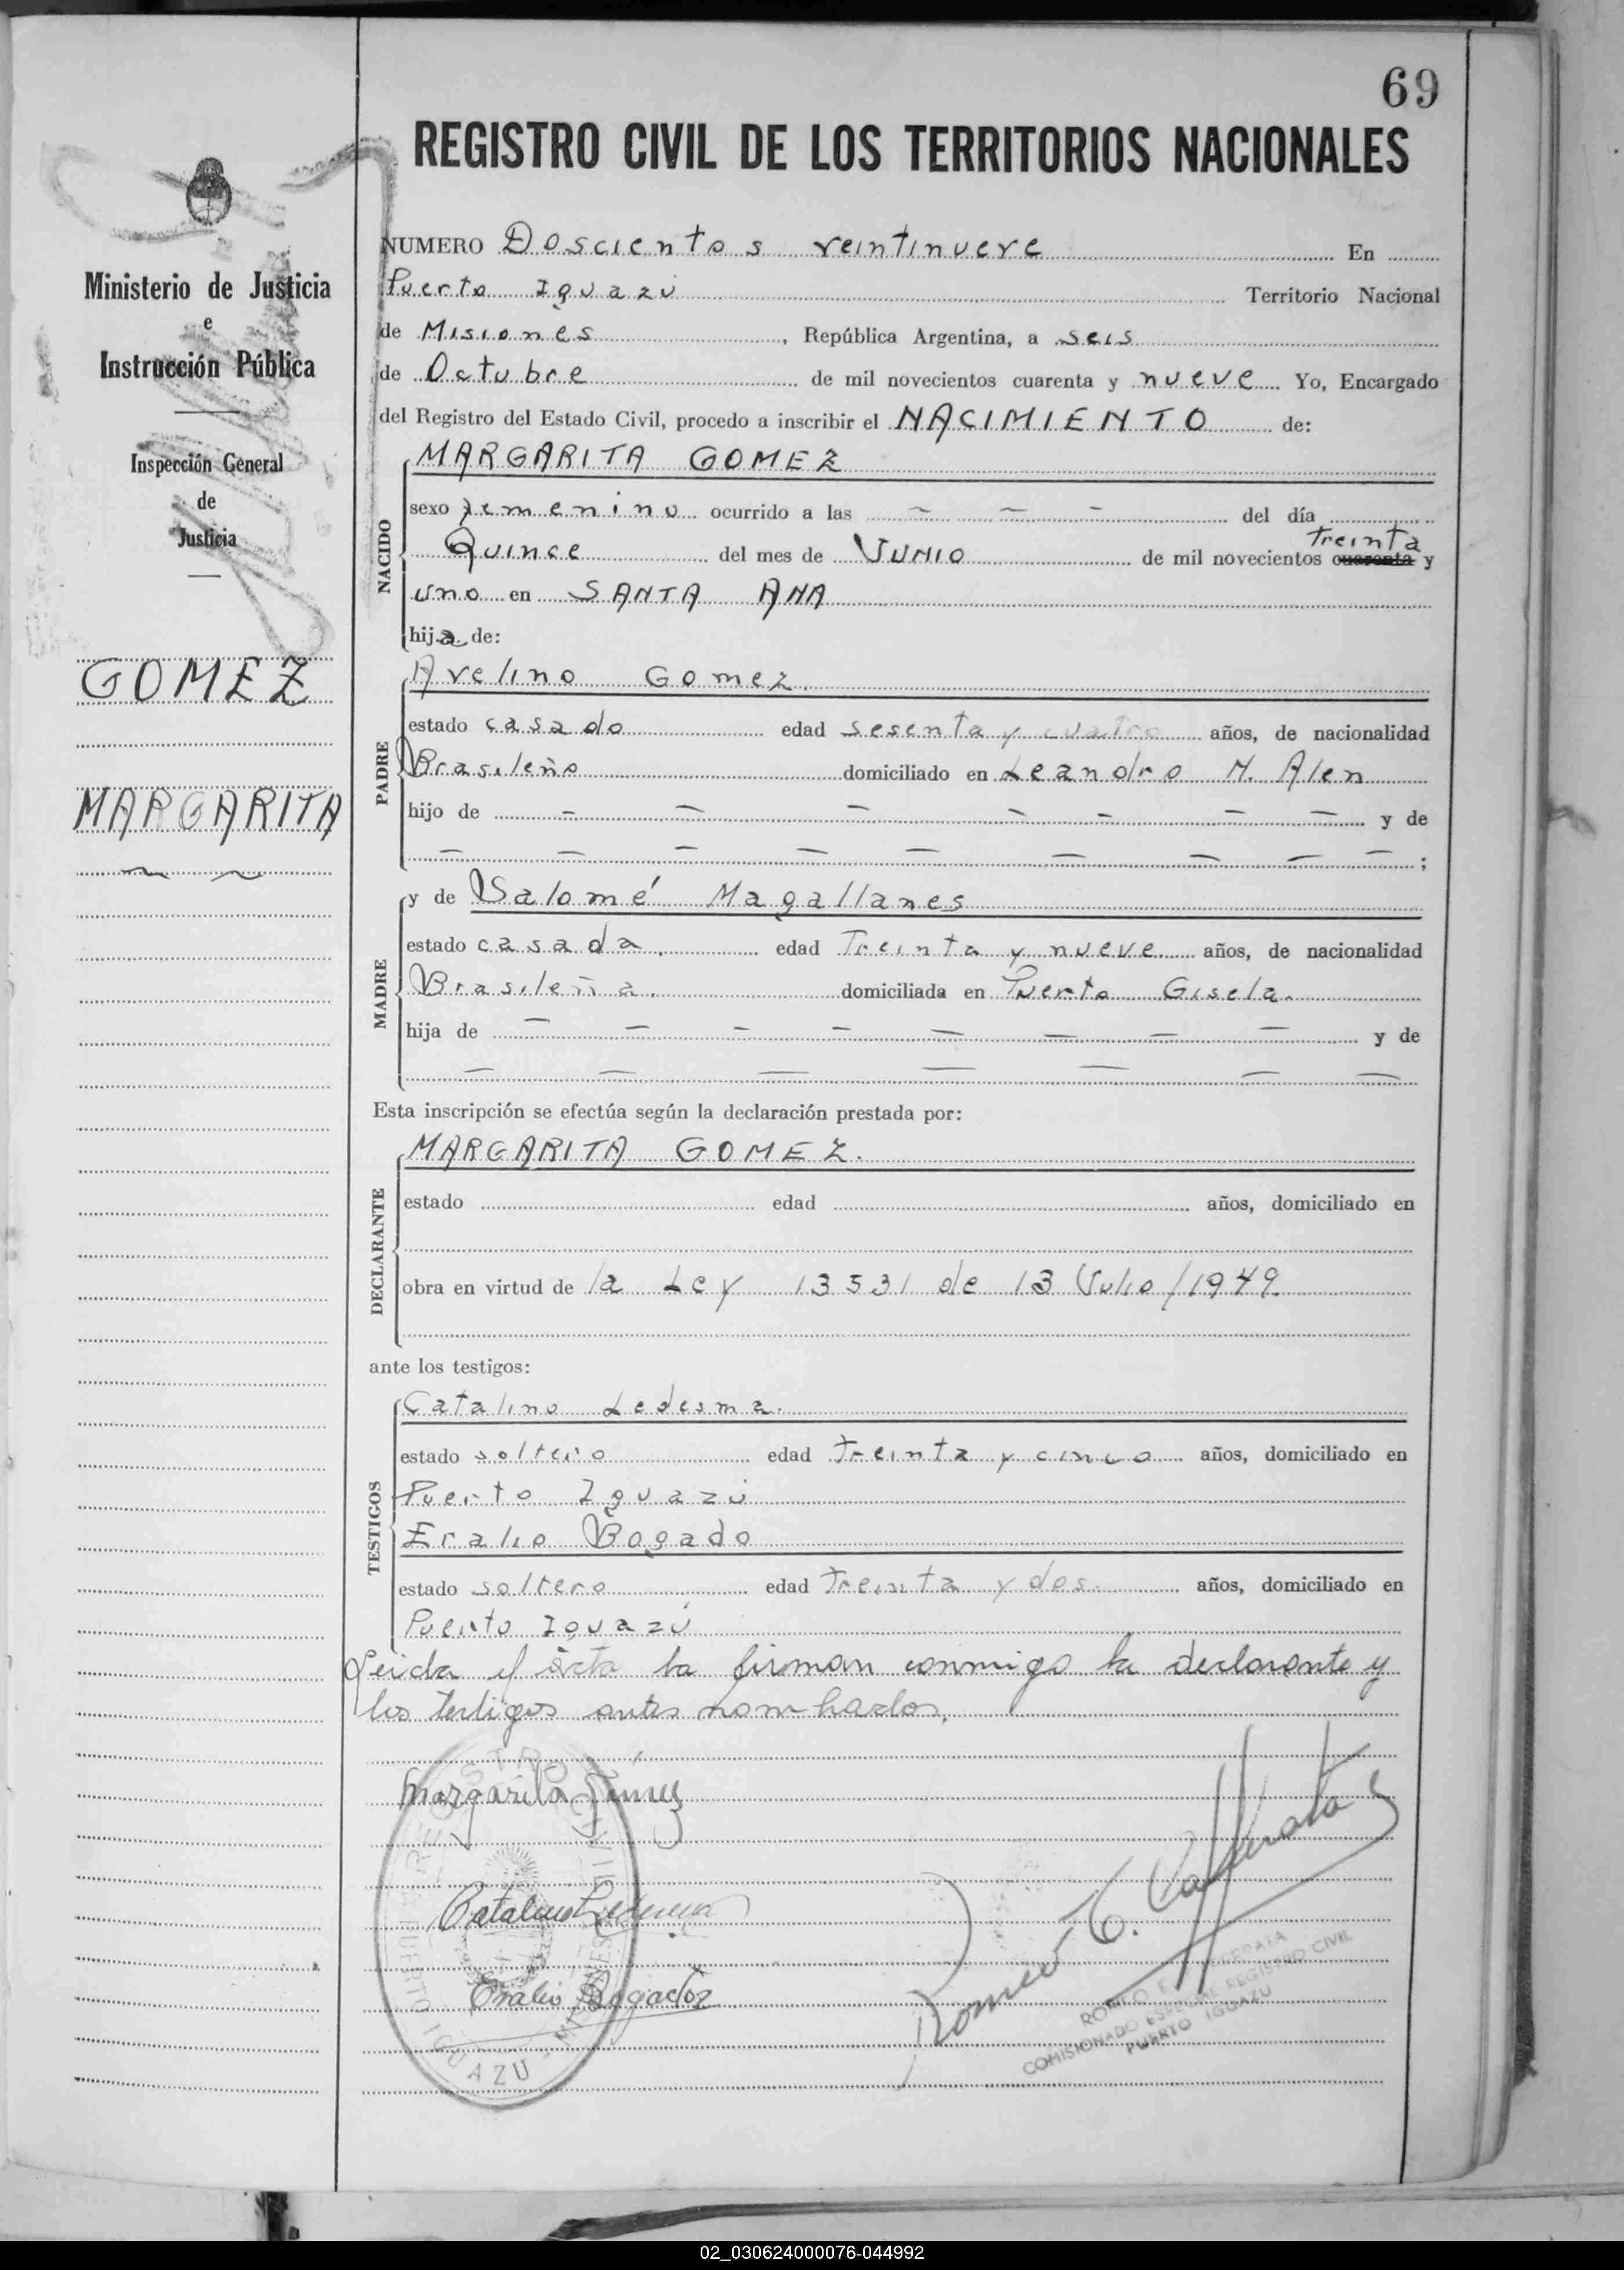 69
REGISTRO CIVIL DE LOS TERRITORIOS NACIONALES
Ministerio de Justicia
e
Instrucción Pública
Inspección General
de
Justicia
GOMEZ
MARGARITA
NUMERO Doscientos veintinueve En
Puerto Iguazú Territorio Nacional
de Misiones, República Argentina, a seis
de Octubre de mil novecientos cuarenta y nueve Yo, Encargado
del Registro del Estado Civil, procedo a inscribir el NACIMIENTO de:
NACIDO
MARGARITA GOMEZ
sexo femenino ocurrido a las - - - del día
Treinta
Quince del mes de JUNIO de mil novecientos cuarenta y
uno en SANTA ANA
hija de:
PADRE
Avelino Gomez.
estado casado edad sesenta y cuatro años, de nacionalidad
Brasileño domiciliado en Leandro N. Alen
hijo de - - - - - - - y de
- - - - - - - - - ;
MADRE
y de Salomé Magallanes
estado casada. edad Treinta y nueve años, de nacionalidad
Brasileña. domiciliada en Puerto Gisela.
hija de - - - - - - - - y de
- - - - - - -
Esta inscripción se efectúa según la declaración prestada por:
DECLARANTE
MARGARITA GOMEZ.
estado edad años, domiciliado en
obra en virtud de la Ley 13531 de 13 Julio/1949.
ante los testigos:
TESTIGOS
Catalino Ledesma.
estado soltero edad Treinta y cinco años, domiciliado en
Puerto Iguazú
Eralio Bogado
estado soltero edad Treinta y dos. años, domiciliado en
Puerto Iguazú
Leida el acta la firman conmigo la declarante y
los testigos antes nombrados.
Margarita Gómez
Catalino Ledesma
Eralio Bogado
Romeo E.
REGISTRO CIVIL
PUERTO IGUAZU - MISIONES
ROMEO E.
COMISIONADO ESPECIAL REGISTRO CIVIL
PUERTO IGUAZU
02_030624000076-044992